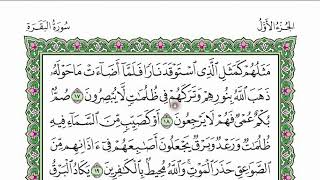 الجزء الأول سورة البقرة
مَثَلُهُمْ كَمَثَلِ الَّذِي اسْتَوْقَدَ نَارًا فَلَمَّا أَضَاءَتْ مَا حَوْلَهُ
ذَهَبَ اللَّهُ بِنُورِهِمْ وَتَرَكَهُمْ فِي ظُلُمَاتٍ لَا يُبْصِرُونَ ١٧ صُمٌّ
بُكْمٌ عُمْيٌ فَهُمْ لَا يَرْجِعُونَ ١٨ أَوْ كَصَيِّبٍ مِنَ السَّمَاءِ فِيهِ
ظُلُمَاتٌ وَرَعْدٌ وَبَرْقٌ يَجْعَلُونَ أَصَابِعَهُمْ فِي آذَانِهِمْ مِنَ
الصَّوَاعِقِ حَذَرَ الْمَوْتِ وَاللَّهُ مُحِيطٌ بِالْكَافِرِينَ ١٩ يَكَادُ الْبَرْقُ